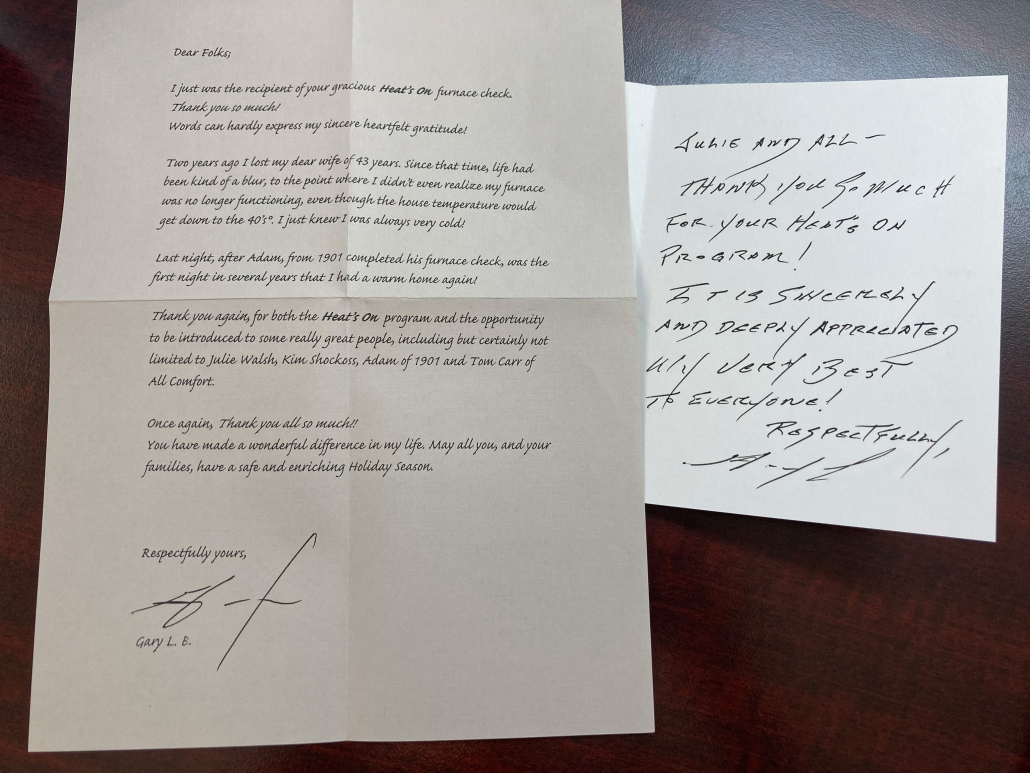 Dear Folks;
I just was the recipient of your gracious Heat's On furnace check.
Thank you so much!
Words can hardly express my sincere heartfelt gratitude!
Two years ago I lost my dear wife of 43 years. Since that time, life had
been kind of a blur, to the point where I didn't even realize my furnace
was no longer functioning, even though the house temperature would
get down to the 40's°. I just knew I was always very cold!
Last night, after Adam, from 1901 completed his furnace check, was the
first night in several years that I had a warm home again!
Thank you again, for both the Heat's On program and the opportunity
to be introduced to some really great people, including but certainly not
limited to Julie Walsh, Kim Shockoss, Adam of 1901 and Tom Carr of
All Comfort.
Once again, Thank you all so much!!
You have made a wonderful difference in my life. May all you, and your
families, have a safe and enriching Holiday Season.
Respectfully yours,
Gary L. B.
JULIE AND ALL –
THANK YOU SO MUCH
FOR YOUR HEAT'S ON
PROGRAM!
IT IS SINCERELY
AND DEEPLY APPRECIATED
MY VERY BEST
TO EVERYONE!
RESPECTFULLY,